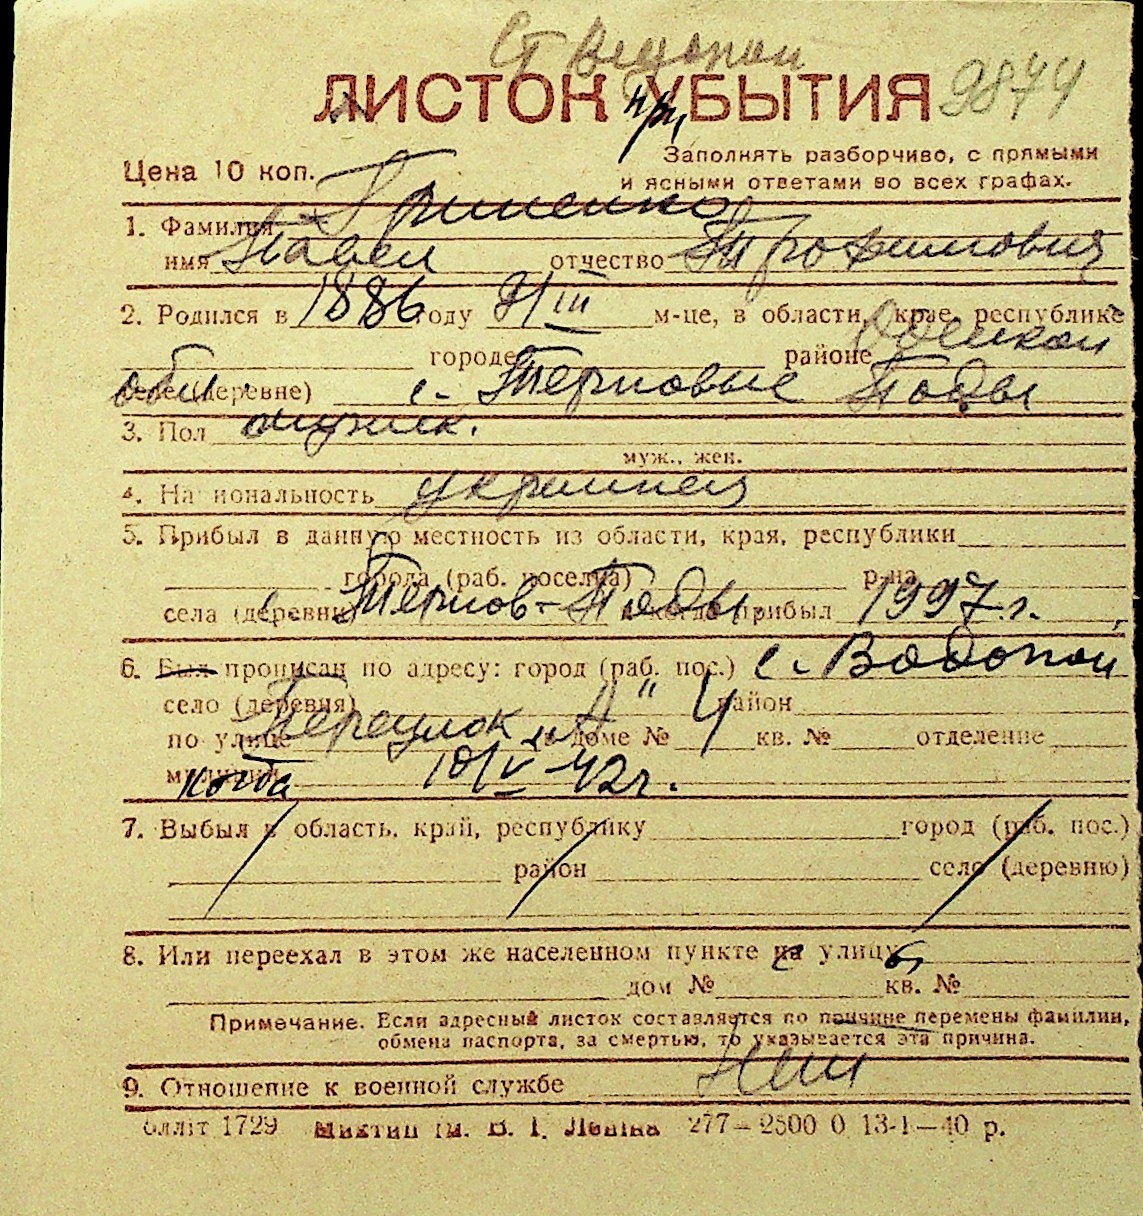 Ст Водопои
ЛИСТОК УБЫТИЯ 9874
Заполнять разборчиво, с прямыми
Цена 10 коп.
и ясными ответами во всех графах.
1. Фамилия Гриненко
имя Павел отчество Трофимович
2. Родился в 1886 году 9/III м-це, в области, крае, республике Одеской
городе районе
обл. селе (деревне) с. Терновые Поды
3. Пол мужск.
муж., жен.
4. Национальность украинец
5. Прибыл в данную местность из области, края, республики
города (раб. поселка) р-на
села (деревни) с. Тернов-Поды и когда прибыл 1997 г.
6. Был прописан по адресу: город (раб. пос.) с. Водопои
село (деревня) район
по улице Переулок „А" в доме № 4 кв. № отделение
милиции когда 18/V-42г.
7. Выбыл в область, край, республику город (раб. пос.)
район село (деревню)
8. Или переехал в этом же населенном пункте на улицу
дом № кв. №
Примечание. Если адресный листок составляется по причине перемены фамилии,
обмена паспорта, за смертью, то указывается эта причина.
9. Отношение к военной службе
блліт 1729 Миктип ім. В. І. Леніна 277—2500 0 13-1—40 р.